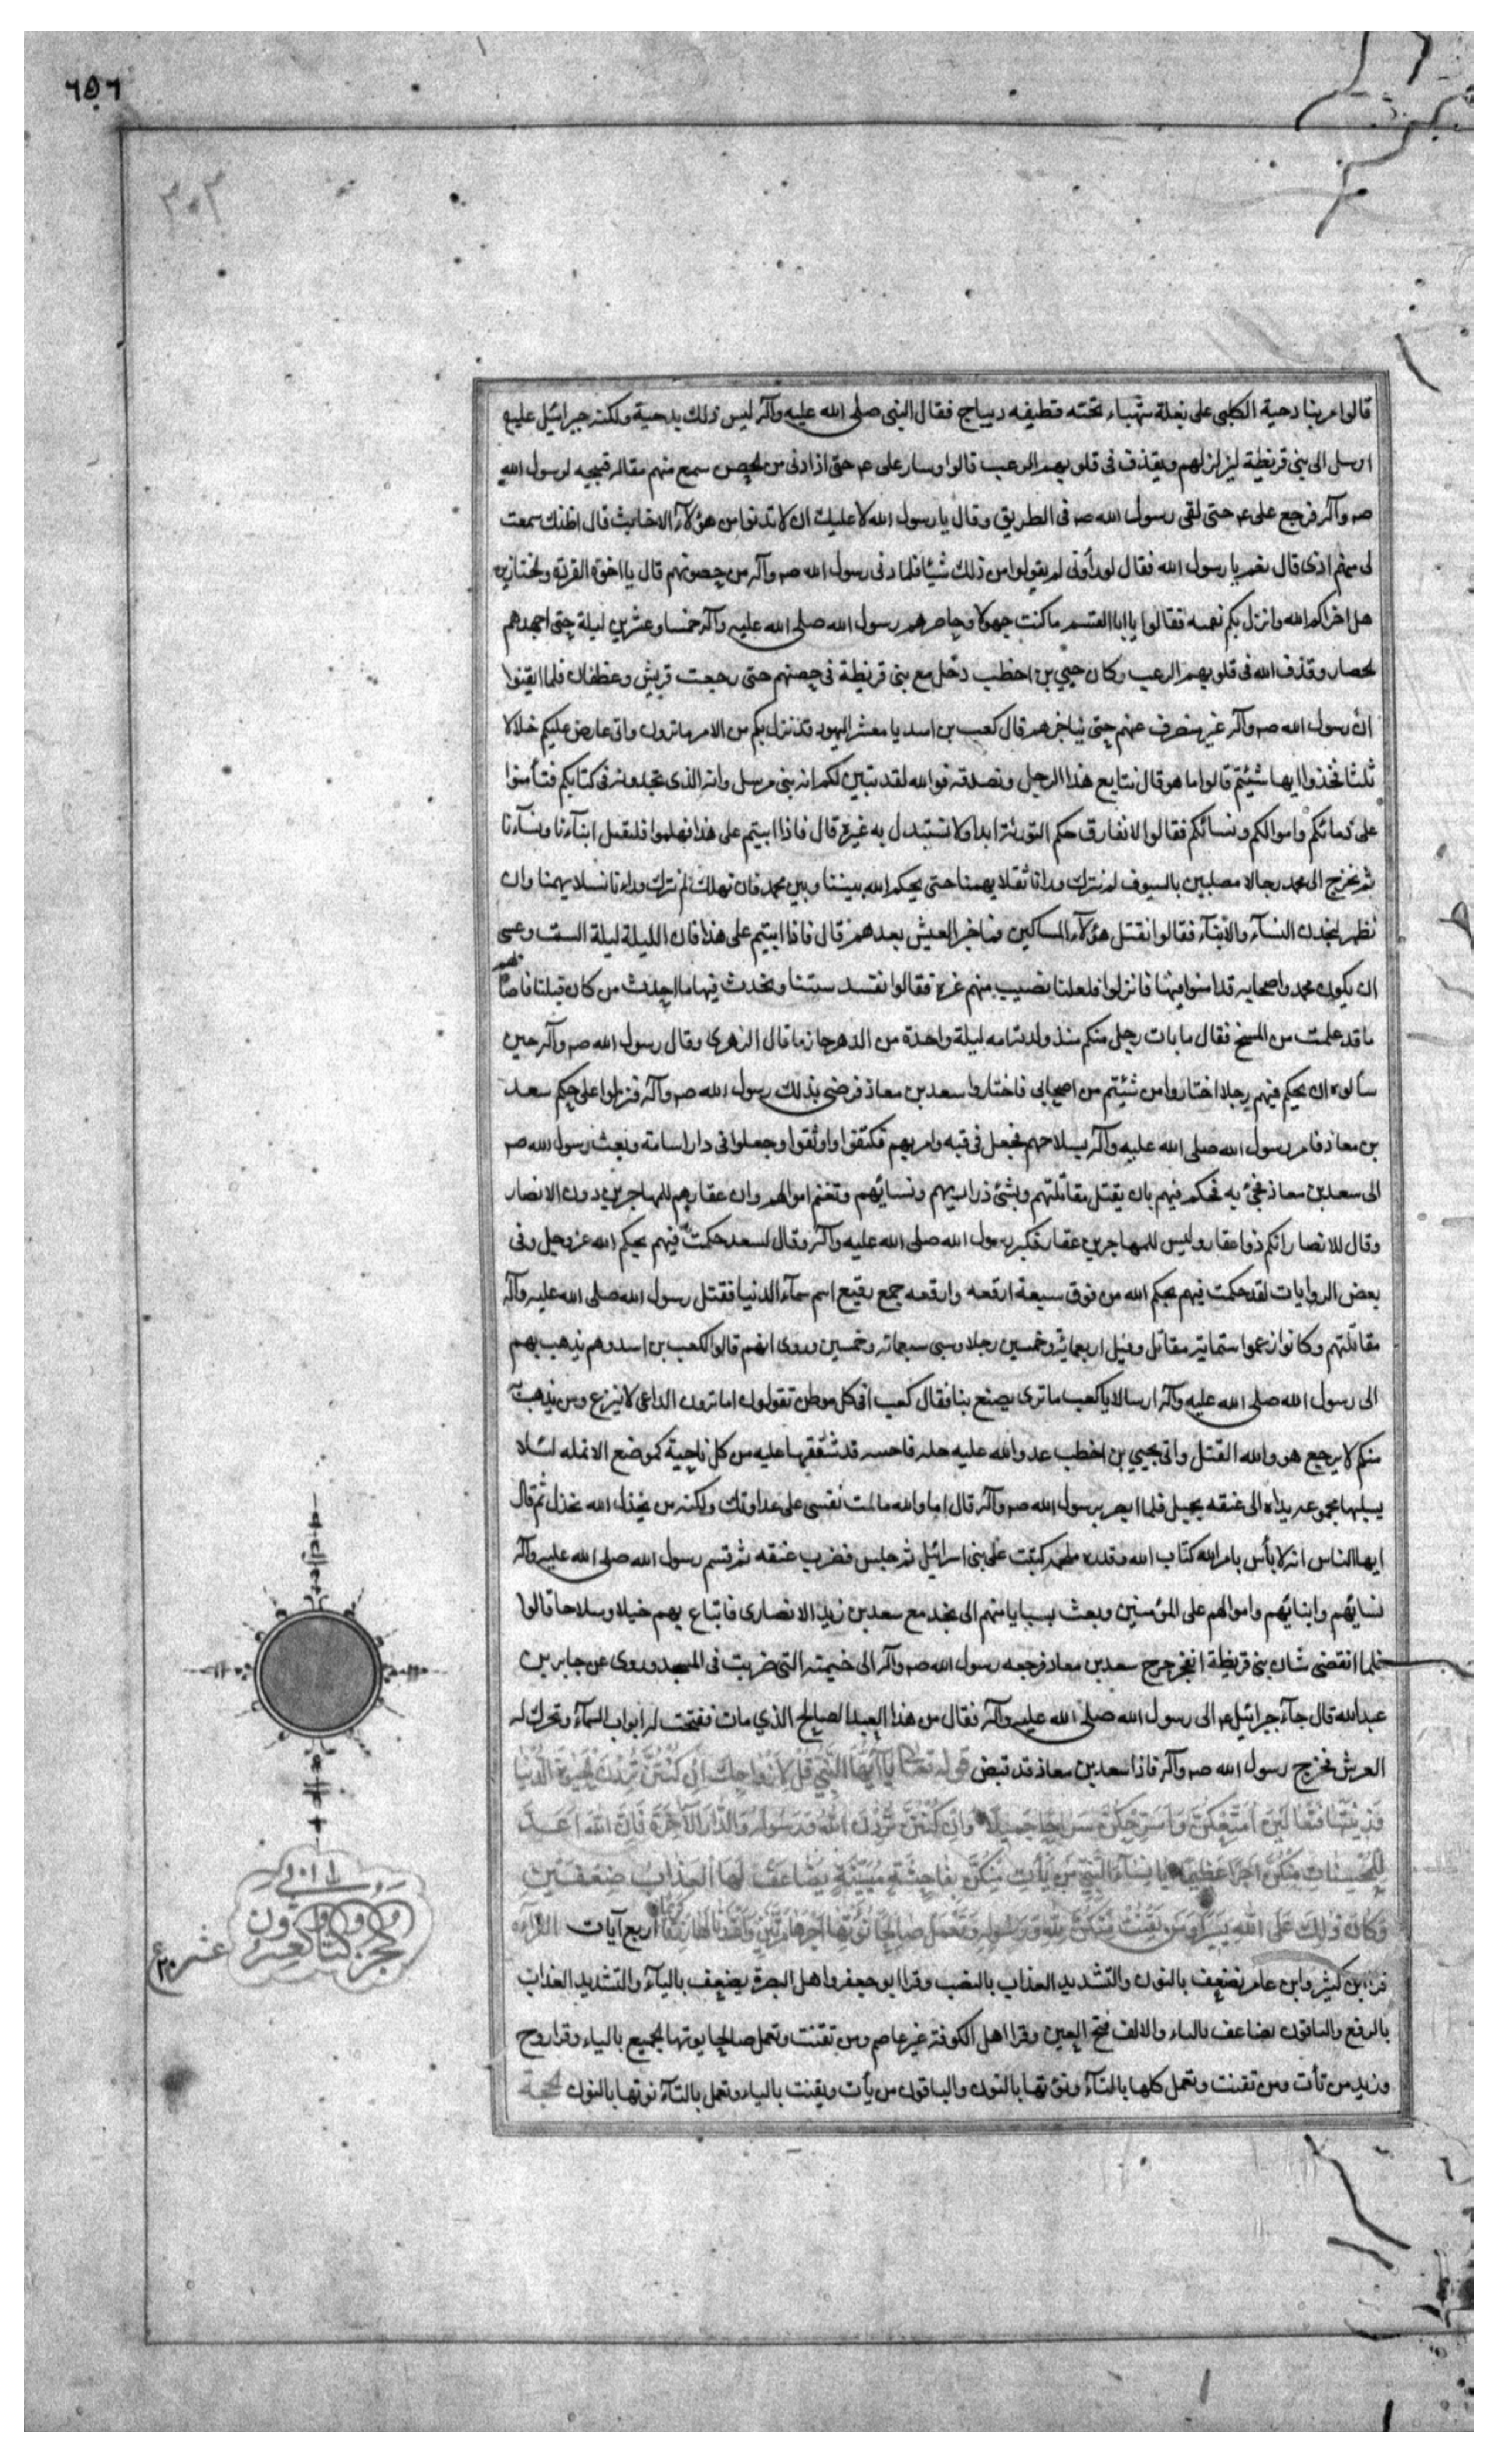 ٦٥٦
٣٠٣
قالوا مر بنا دحية الكلبى على بغلة شهباء تحته قطيفه ديباج فقال النبى صلى الله عليه وآله ليس ذلك بدحية ولكنه جبرائيل عليه
ارسل الى بنى قريظة ليزلزلهم ويقذف فى قلوبهم الرعب قالوا وسار على ع حتى اذا دنى من الحصن سمع منهم مقاله قبيحه لرسول الله
صه وآله فرجع على ع حتى لقى رسول الله صه فى الطريق وقال يا رسول الله لا عليك ان لا تدنوا من هؤلآء الاخابث قال اظنك سمعت
لى منهم اذى قال نعم يا رسول الله فقال لو رأونى لم يقولوا من ذلك شيئا فلما دنى رسول الله صه وآله من حصونهم قال يا اخوة القردة والخنازير
هل اخزاكم الله وانزل بكم نقمته فقالوا يا ابا القسم ما كنت جهولا وحاصرهم رسول الله صلى الله عليه وآله خمسا وعشرين ليلة حتى اجهدهم
لحصار وقذف الله فى قلوبهم الرعب وكان حيي بن اخطب دخل مع بنى قريظة فى حصنهم حتى رجعت قريش وغطفان فلما ايقنوا
ان رسول الله صه وآله غير منصرف عنهم حتى يناجزهم قال كعب بن اسد يا معشر اليهود قد نزل بكم من الامر ما ترون وانى عارض عليكم خلالا
ثلثا فخذوا ايها شئتم قالوا ما هو قال نتابع هذا الرجل ونصدقه فوالله لقد تبين لكم انه نبى مرسل وانه الذى تجدونه فى كتابكم فتأمنوا
على دمائكم واموالكم ونسائكم فقالوا لا نفارق حكم التورئة ابدا ولا نستبدل به غيره قال فاذا ابيتم على هذا فهلموا فلنقتل ابنآءنا ونسآءنا
ثم نخرج الى محمد رجالا مصلتين بالسيوف لم نترك ورانا ثقلا يهمنا حتى يحكم الله بيننا وبين محمد فان نهلك لم نترك وراءنا نسلا يهمنا وان
نظهر لنجدن النسآء والابنآء فقالوا نقتل هؤلآء المساكين فما خير العيش بعدهم قال فاذا ابيتم على هذا فان الليلة ليلة السبت وعسى
ان يكون محمد واصحابه قد امنوا فيها فانزلوا فلعلنا نصيب منهم غرة فقالوا نفسد سبتنا ونحدث فيها ما احدث من كان قبلنا فاصابهم
ما قد علمت من المسخ فقال ما بات رجل منكم منذ ولدته امه ليلة واحدة من الدهر حازما قال الزهرى وقال رسول الله صه وآله حين
سألوه ان يحكم فيهم رجلا اختاروا من شئتم من اصحابى فاختاروا سعد بن معاذ فرضى بذلك رسول الله صه وآله فنزلوا على حكم سعد
بن معاذ فامر رسول الله صلى الله عليه وآله بسلاحهم فجعل فى قبه وامر بهم فكتفوا واوثقوا وجعلوا فى دار اسامة وبعث رسول الله صه
الى سعد بن معاذ فجئ به فحكم فيهم بان يقتل مقاتلتهم وتسبى ذراريهم ونسائهم وتغنم اموالهم وان عقارهم للمهاجرين دون الانصار
وقال للانصار انكم ذوا عقار وليس للمهاجرين عقار فكبر رسول الله صلى الله عليه وآله وقال لسعد حكمت فيهم بحكم الله عز وجل وفى
بعض الروايات لقد حكمت فيهم بحكم الله من فوق سبعة ارقعه وارقعه جمع رقيع اسم سمآء الدنيا فقتل رسول الله صلى الله عليه وآله
مقاتلتهم وكانوا زعموا ستمائة مقاتل وقيل اربعمائة وخمسين رجلا وسبى سبعمائه وخمسين وروى انهم قالوا لكعب بن اسد وهم يذهب بهم
الى رسول الله صلى الله عليه وآله ارسالا يا كعب ما ترى يصنع بنا فقال كعب افى كل موطن تقولون اما ترون الداعى لا ينزع ومن يذهب
منكم لا يرجع هو والله القتل واتى بحيي بن اخطب عدو الله عليه حله فاحسه قد شققها عليه من كل ناحية كموضع الانمله لئلا
يسلبها مجموعه يداه الى عنقه بحبل فلما ابصر برسول الله صه وآله قال اما والله ما لمت نفسى على عداوتك ولكنه من يخذل الله يخذل ثم قال
ايها الناس انه لا بأس بامر الله كتاب الله وقدره ملحمه كتبت على بنى اسرائيل ثم جلس فضرب عنقه ثم قسم رسول الله صلى الله عليه وآله
نسائهم وابنائهم واموالهم على المؤمنين وبعث بسبايا منهم الى نجد مع سعد بن زيد الانصارى فابتاع بهم خيلا وسلاحا قالوا
فلما انقضى شان بنى قريظة انفجر جرح سعد بن معاذ فرجعه رسول الله صه وآله الى خيمته التى ضربت فى المسجد وروى عن جابر بن
عبدالله قال جآء جبرائيل ع الى رسول الله صلى الله عليه وآله فقال من هذا العبد الصالح الذي مات ففتحت له ابواب السمآء وتحرك له
العرش فخرج رسول الله صه وآله فاذا سعد بن معاذ قد قبض قوله تعالى يا آيها النبي قل لازواجك ان كنتن تردن الحيوة الدنيا
وزينتها فتعالين امتعكن واسرحكن سراحا جميلا وان كنتن تردن الله ورسوله والدار الآخرة فان الله اعد
للمحسنات منكن اجرا عظيما يا نسآء النبي من يأت منكن بفاحشة مبينة يضاعف لها العذاب ضعفين
وكان ذلك على الله يسيرا ومن يقنت منكن لله ورسوله وتعمل صالحا نؤتها اجرها مرتين واعتدنا لها رزقا كريما اربع آيات القرآءه
قرا ابن كثير وابن عامر نضعف بالنون والتشديد العذاب بالنصب وقرا ابو جعفر واهل البصرة يضعف باليآء والتشديد العذاب
بالرفع والباقون يضاعف بالياء والالف فتح العين وقرا اهل الكوفة غير عاصم ومن يقنت ويعمل صالحا يوتها الجميع بالياء وقرا روح
وزيد من تأت ومن تقنت وتعمل كلها بالتآء ونؤتها بالنون والباقون من يأت ويقنت بالياء وتعمل بالتآء نوتها بالنون الحجة
الجزو